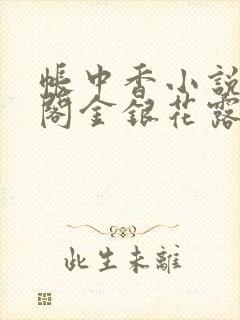 帳中香小說
閣金銀花露
此生未離